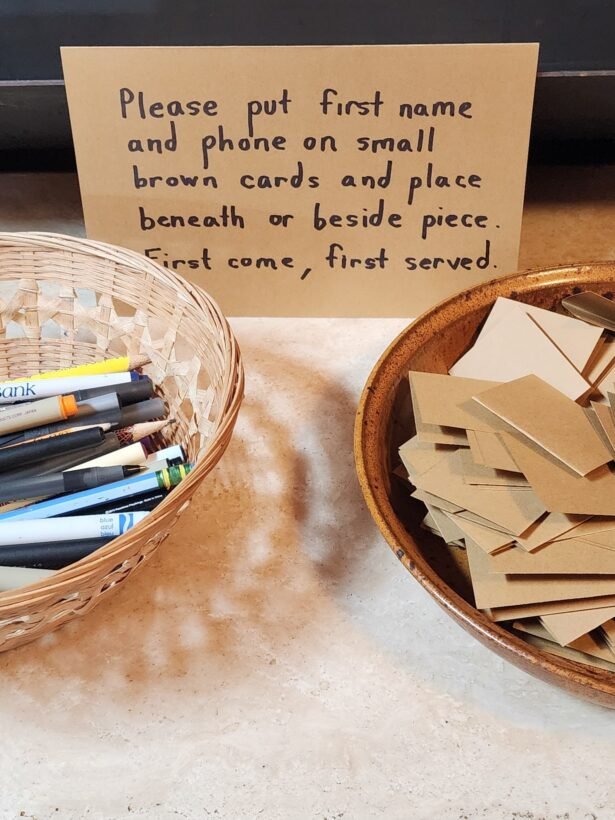 Please put first name
and phone on small
brown cards and place
beneath or beside piece.
First come, first served.
ank
blue
azul
bleu